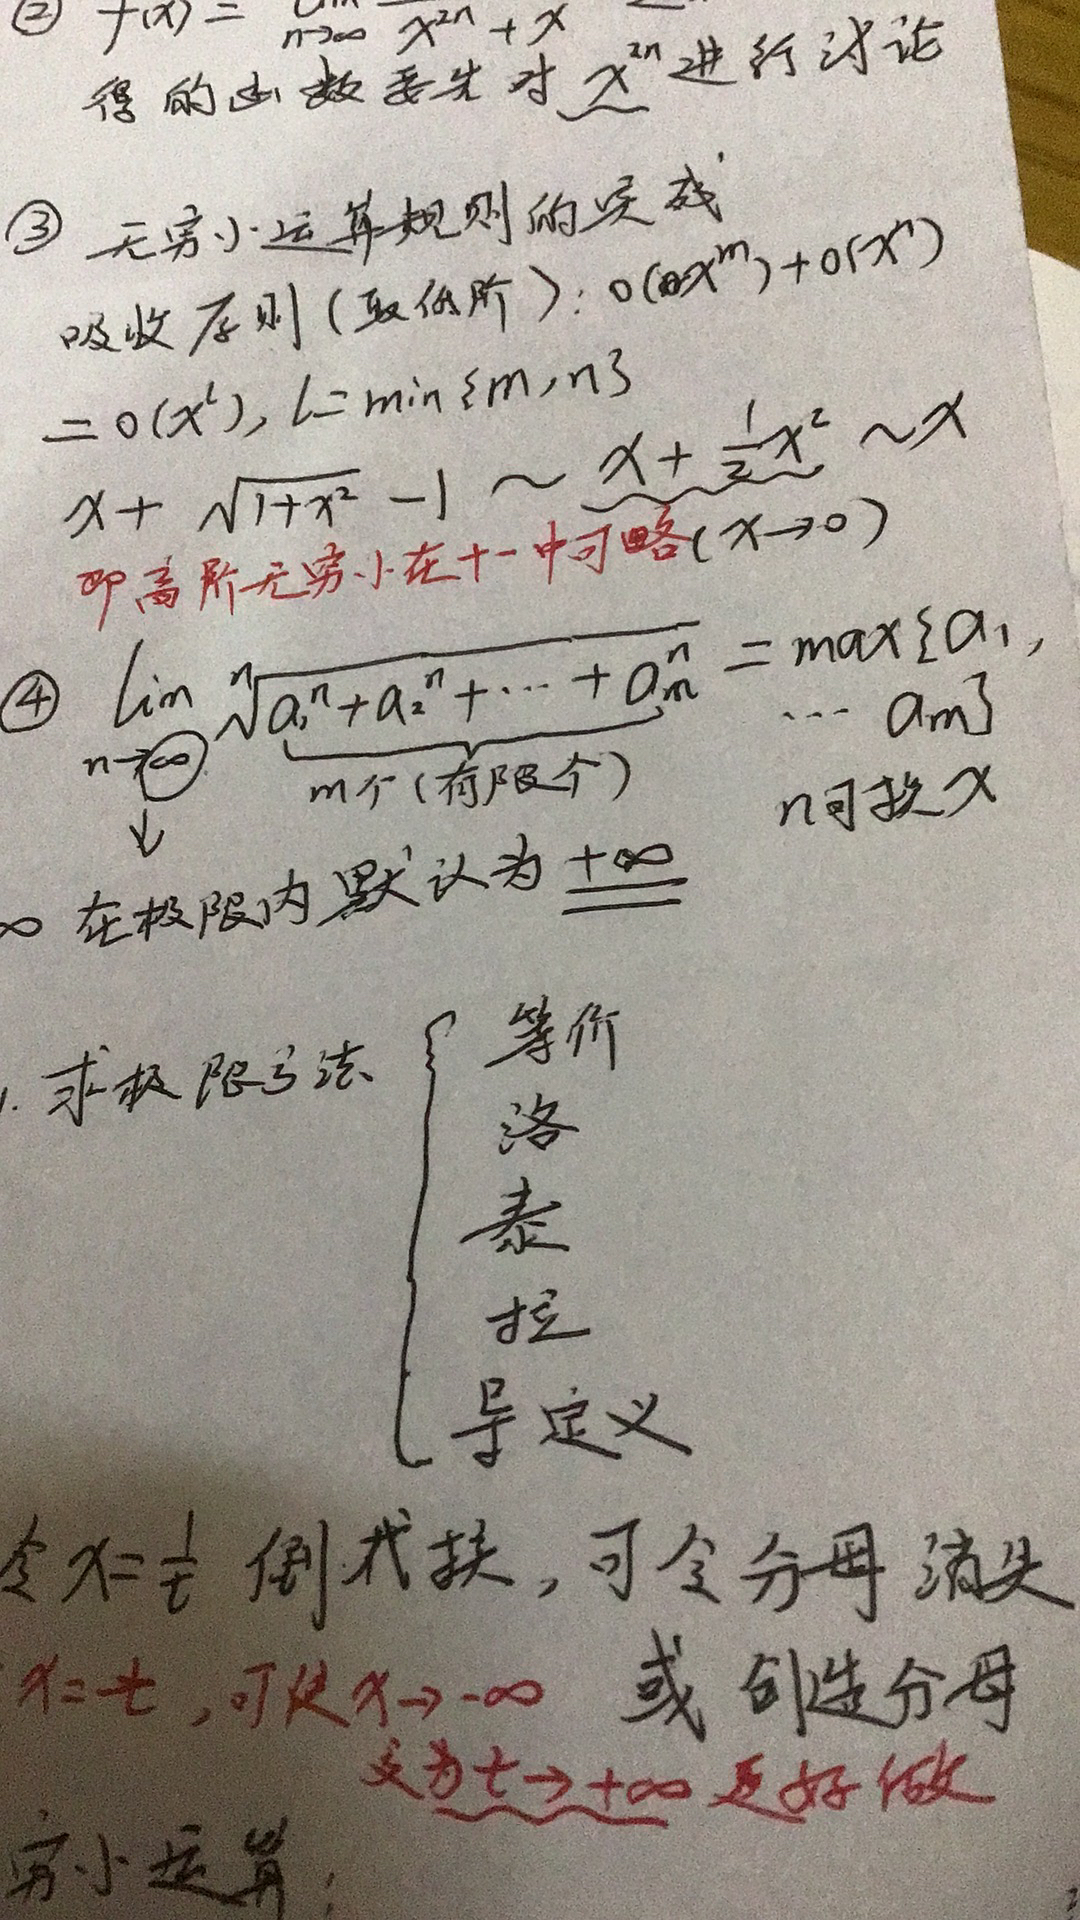 ② f(x) = lim n→∞ x²ⁿ + x
得的函数要先对 x²ⁿ 进行讨论
③ 无穷小运算规则的实战
吸收原则(取低阶): o(xᵐ) + o(xⁿ)
= o(xˡ), l = min{m, n}
x + √(1+x²) - 1 ~ x + ½x² ~ x
即高阶无穷小在+-中可略 (x→0)
④ lim n→∞ ⁿ√(a₁ⁿ + a₂ⁿ + ⋯ + aₘⁿ) = max{a₁,
⋯ aₘ}
m个(有限个)
n可换x
↓
∞ 在极限内默认为 +∞
1. 求极限方法 {
等价
洛
泰
拉
导定义
令 x = 1/t 倒代换, 可令分母消失
或创造分母
x = -t, 可使 x→-∞
变为 t→+∞ 更好做
穷小运算: